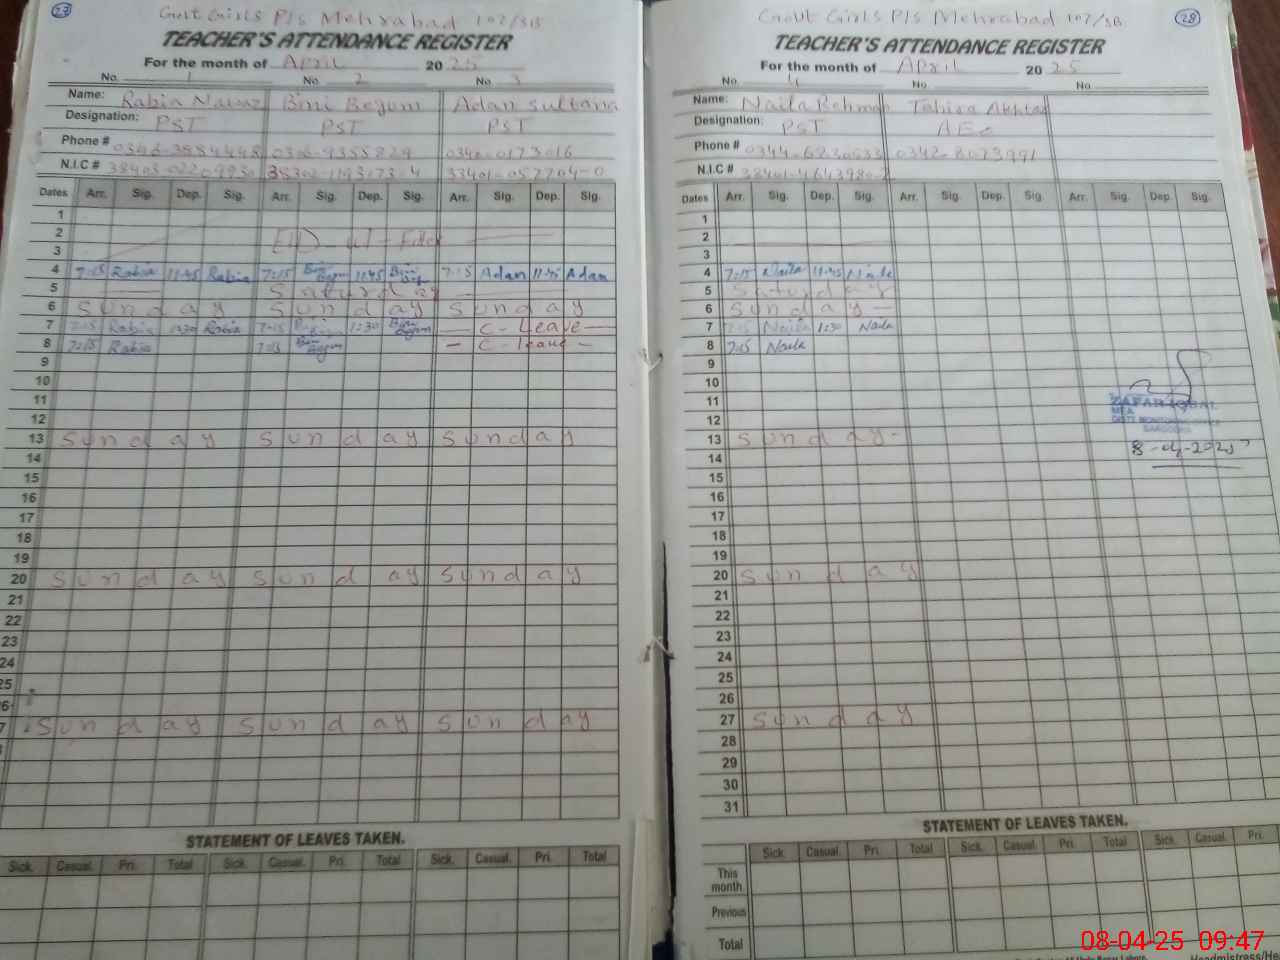 27
Govt Girls P/s Mehrabad 107/SB
TEACHER'S ATTENDANCE REGISTER
For the month of April 2025
No. 1 No. 2 No. 3
Name: Rabia Nawaz Bini Begum Adan Sultana
Designation: PST PST PST
Phone #
N.I.C #
Dates Arr. Sig. Dep. Sig. Arr. Sig. Dep. Sig. Arr. Sig. Dep. Sig.
1
2 Eid-ul-Fitar
3
4 7:15 Rabia 11:45 Rabia 7:15 Bini Begum 11:45 Bini Begum 7:15 Adan 11:45 Adan
5 Saturday
6 Sunday Sunday Sunday
7 7:15 Rabia 1:30 Rabia 7:15 Bini 1:30 Bini Begum C-Leave
8 7:15 Rabia 7:15 Bini Begum C-leave
9
10
11
12
13 Sunday Sunday Sunday
14
15
16
17
18
19
20 Sunday Sunday Sunday
21
22
23
24
25
26
27 Sunday Sunday Sunday
STATEMENT OF LEAVES TAKEN.
Sick. Casual. Pri. Total Sick. Casual. Pri. Total Sick. Casual. Pri. Total
28
Govt Girls P/s Mehrabad 107/SB
TEACHER'S ATTENDANCE REGISTER
For the month of April 2025
No. 4 No. No.
Name: Naila Rehman Tahira Akhtar
Designation: PST
Phone # 0342-8073991
N.I.C #
Dates Arr. Sig. Dep. Sig. Arr. Sig. Dep. Sig. Arr. Sig. Dep. Sig.
1
2
3
4 7:15 Naila 11:45 Naila
5 Saturday
6 Sunday
7 7:15 Naila 1:30 Naila
8 7:15 Naila
9
10
11
12
ZAFAR IQBAL
MEA
13 Sunday
8-04-2025
14
15
16
17
18
19
20 Sunday
21
22
23
24
25
26
27 Sunday
28
29
30
31
STATEMENT OF LEAVES TAKEN.
Sick. Casual. Pri. Total Sick. Casual. Pri. Total Sick. Casual. Pri.
This month
Previous
Total
08-04-25 09:47